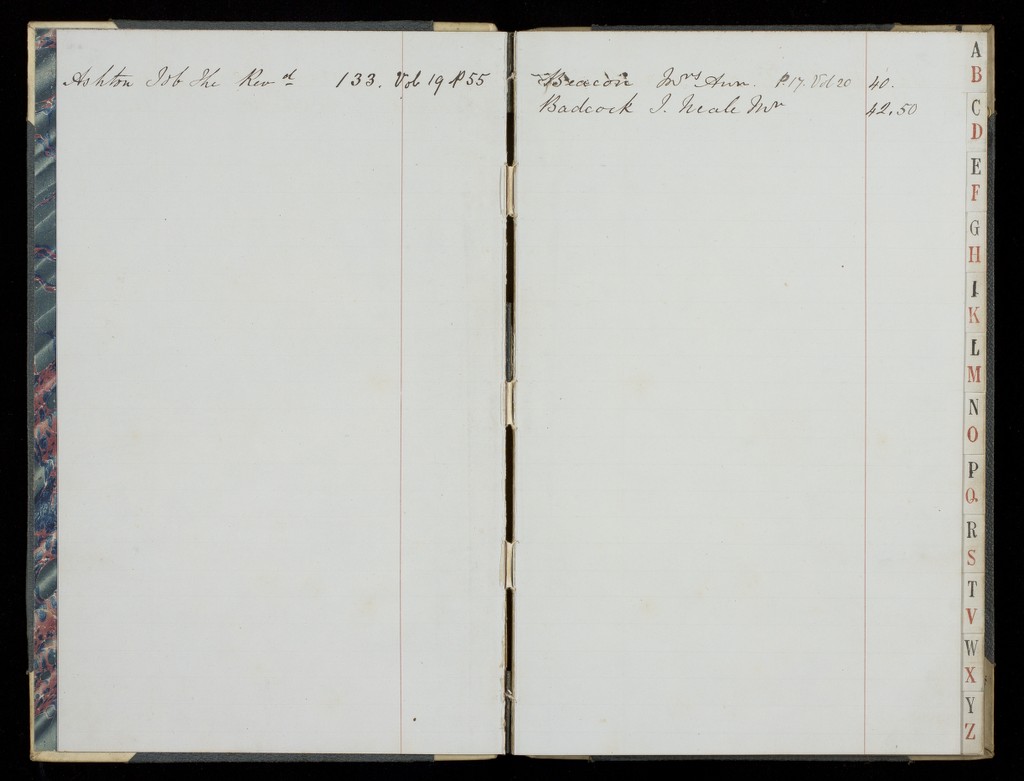 Ashton Job The Revd 133. Vol 19 P 55
Beacon Mrs Ann. P. 17. Vol 20 40.
Badcock I. Neale Mr 42.50
A
B
C
D
E
F
G
H
I
K
L
M
N
O
P
Q.
R
S
T
V
W
X
Y
Z